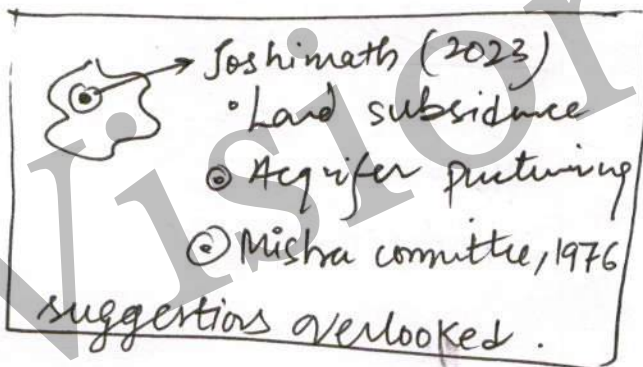 Joshimath (2023)
• Land subsidence
⊙ Acquifer puncturing
⊙ Mishra committe, 1976
suggestions overlooked.
Vision